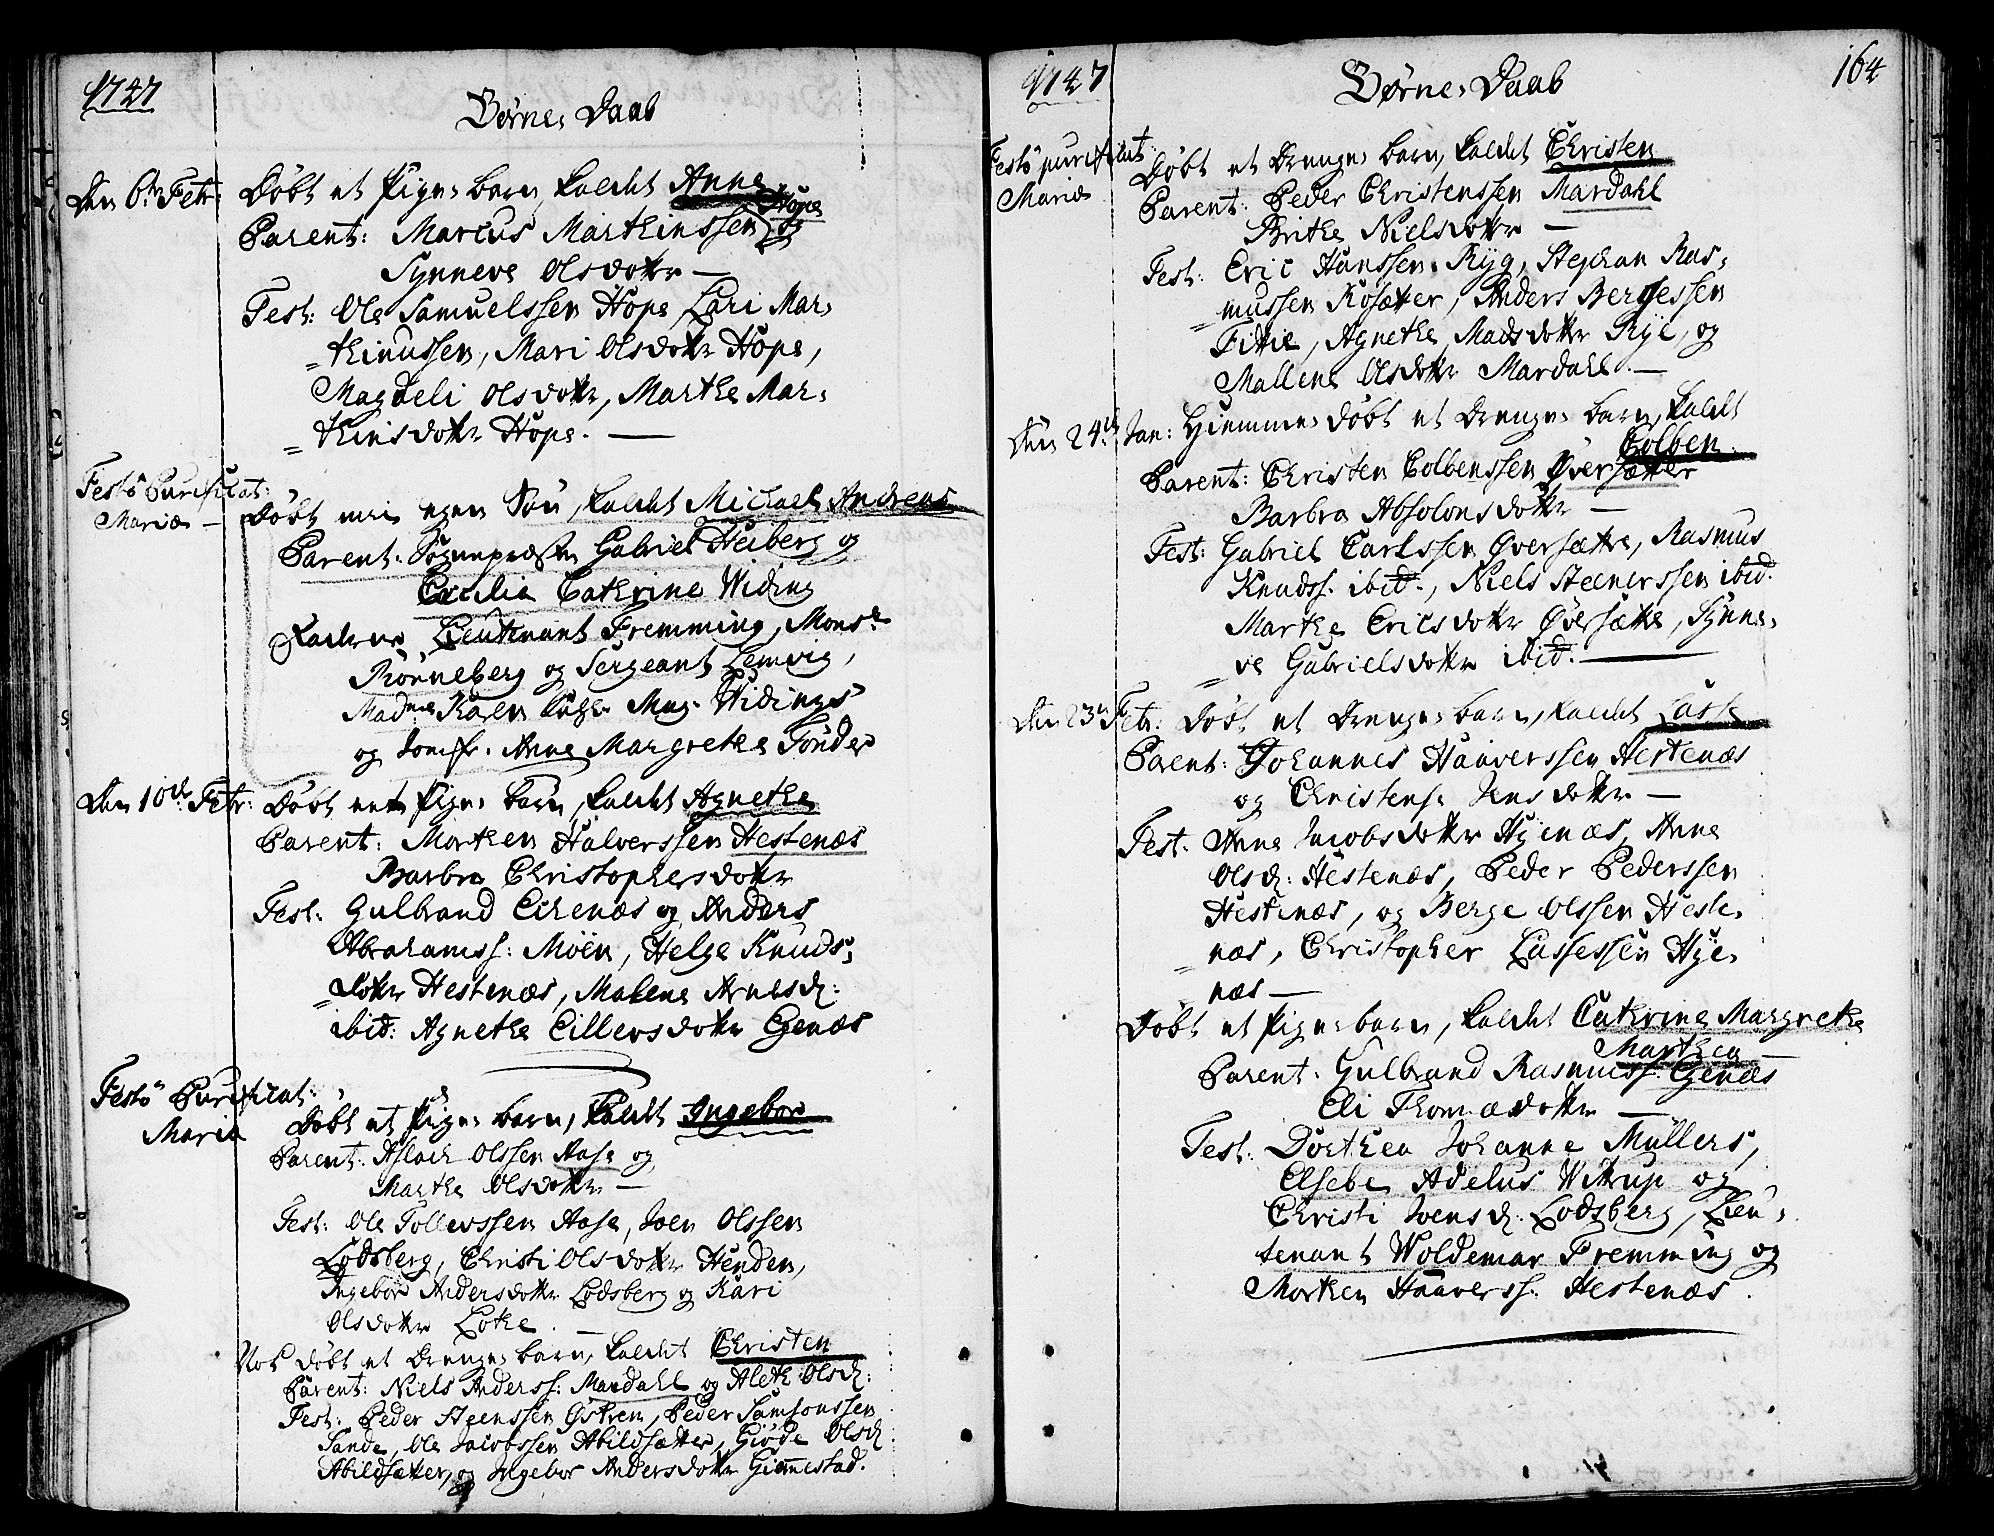 1747
Børne, Daab
Den 6te Febr: Døbt et Pige, barn, kaldet Anne
Parent: Marcus Marthinssen Hope og
Synneve Olsdotter —
Test: Ole Samuelssen Hope, Lari Mar,
thinussen, Mari Olsdotter Hope,
Magdeli Olsdottr, Marthe Mar,
thinsdottr Hope. —
Festo Purificat:
Mariæ — Døbt min egen Søn, kaldet Michael Andreas
Parent: Sognepræsten Gabriel Heiberg og
Cecilia Cathrine Widing
Faddere, Lieutenant Fremming, Monsr
Rønneberg og Sergeant Lemvig,
Madme Karen Mag. Widings
og Jomfr. Anne Margrethe Tønder
Den 10de Febr: Døbt et Pige, barn, kaldet Agnethe
Parent: Morten Halverssen Hestenæs
Barbra Christophersdottr
Test: Gulbrand Eichenæs og Anders
Abrahamss: Møen, Helge Knuds,
dottr Hestenæs, Malene Arnesd:
ibid: Agnethe Eillersdottr Egenæs
Festo Purificat:
Mariæ Døbt et Pige, barn, kaldet Ingebor
Parent: Aslach Olssen Aase og
Marthe Olsdottr —
Test: Ole Tollevssen Aase, Joen Olssen
Lødsberg, Christi Olsdottr Henden,
Ingebor Andersdottr Lødsberg og Kari
Olsdottr Løke. —
Nok døbt et Drenge, barn, kaldet Christen
Parent: Niels Anderss: Mardahl og Aleth Olsd:
Test: Peder Steenssen Østrem, Peder Samsonssen
Sande, Ole Jacobssen Abildsætter, Giøde Olsd:
Abildsæter, og Ingebor Andersdottr Giemmestad.
1747
Børne, Daab
164
Festo purificat:
Mariæ
Døbt et Drenge, barn, kaldet Christen
Parent: Peder Christenssen Mardahl
Brithe Nielsdottr —
Test: Eric Hanssen Ryg, Stephan Ras,
mussen Røsætter, Anders Bergessen
Fitie, Agnethe Madsdottr Ryg, og
Mallene Olsdottr Mardahl. —
Den 24de Jan: Hiemme, døbt et Drenge, barn, kaldet
Colben
Parent: Christen Colbenssen Øversætter
Barbra Absolonsdottr —
Test: Gabriel Carlssen Øversætte, Rasmus
Knudss. ibid., Niels Steenerssen ibid.
Marthe Ericsdottr Øversætte, Synne,
ve Gabrielsdottr ibid. —
Den 23de Febr: Døbt et Drenge, barn, kaldet Lasse
Parent: Johannes Haaverssen Hestenæs
og Christense Jensdottr —
Test: Anne Jacobsdottr Hyenæs, Anne
Olsd: Hestenæs, Peder Pederssen
Hestenæs, og Berge Olssen Heste,
næs, Christopher Lassessen Hye,
næs —
Døbt et Pige, barn, kaldet Cathrine Margrethe
Marthea —
Parent: Gulbrand Rasmuss: Egenæs
Eli Thomædottr —
Test: Dorthea Johanne Müllers,
Elsebe Adelus Witrup og
Christi Joensd: Lødsberg, Lieu,
tenant Woldemar Fremming og
Morten Haaverss: Hestenæs.